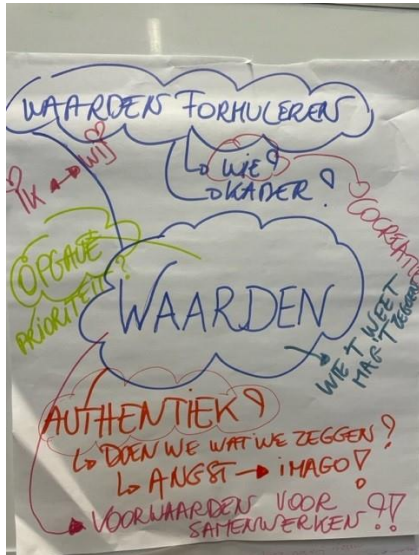 WAARDEN FORMULEREN
IK ↔ WIJ
↳ WIE?
↳ KADER?
COCREATIE
OPGAVE
PRIORITEIT?
WAARDEN
WIE 'T WEET
MAG 'T ZEGGEN
AUTHENTIEK?
↳ DOEN WE WAT WE ZEGGEN?
↳ ANGST → IMAGO!
→ VOORWAARDEN VOOR
SAMENWERKEN?!